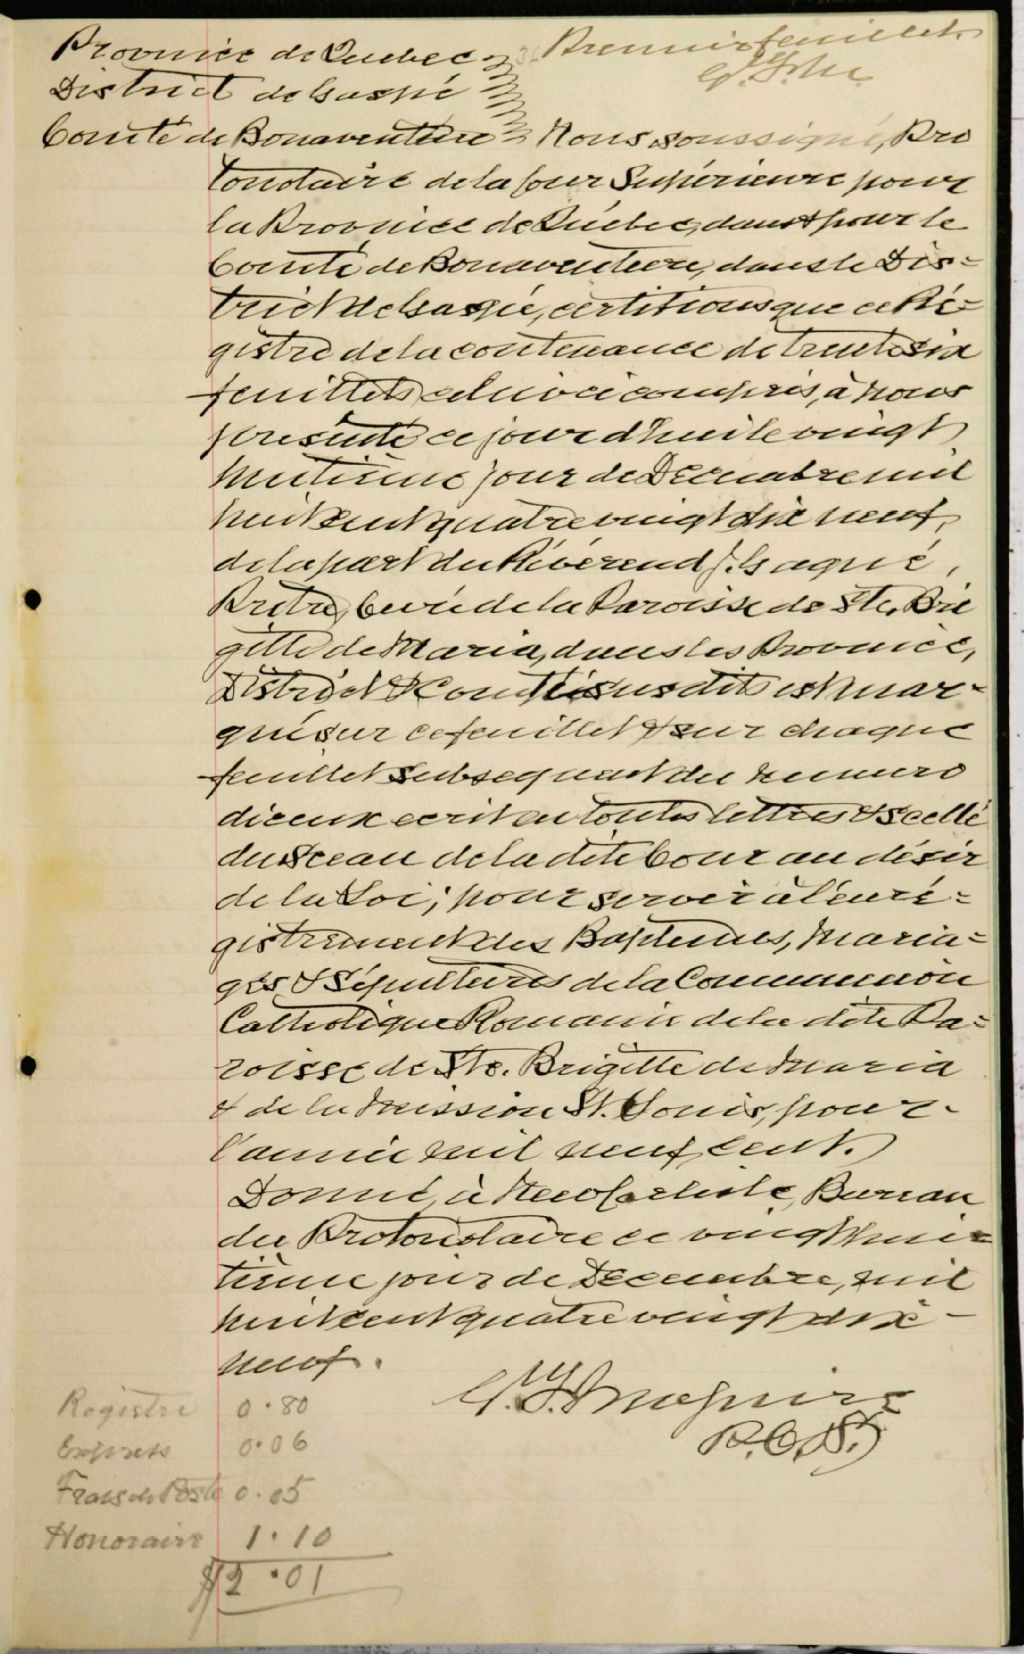 Province de Québec
Premier feuillet
District de Gaspé
Comté de Bonaventure
Nous soussigné, Pro
tonotaire de la Cour Supérieure pour
la Province de Québec, dans & pour le
Comté de Bonaventure, dans le Dis=
trict de Gaspé, certifions que ce Ré=
gistre de la contenance de trente six
feuillets celui ci compris, à nous
présenté ce jourd'hui le vingt
huitième jour de Décembre mil
huit cent quatre vingt dix neuf,
de la part du Révérend J. Gagné,
Prêtre, Curé de la Paroisse de Ste. Bri
gitte de Maria, dans les Province,
District & Comté susdits est mar-
qué sur ce feuillet & sur chaque
feuillet subsequent du numero
d'iceux ecrit en toutes lettres & scellé
du Sceau de la dite Cour au désir
de la Loi; pour servir à l'enré=
gistrement des Baptemes, Maria=
ges & Sépultures de la Communion
Catholique Romaine de la dite Pa=
roisse de Ste. Brigitte de Maria
& de la Mission St. Louis, pour
l'année mil neuf cent.
Donné à New Carlisle, Bureau
du Protonotaire ce vingt hui=
tième jour de Decembre, mil
huit cent quatre vingt dix -
neuf.
Registre 0.80
0.06
Frais de Poste 0.05
Honoraire 1.10
$2.01
P.C.S.